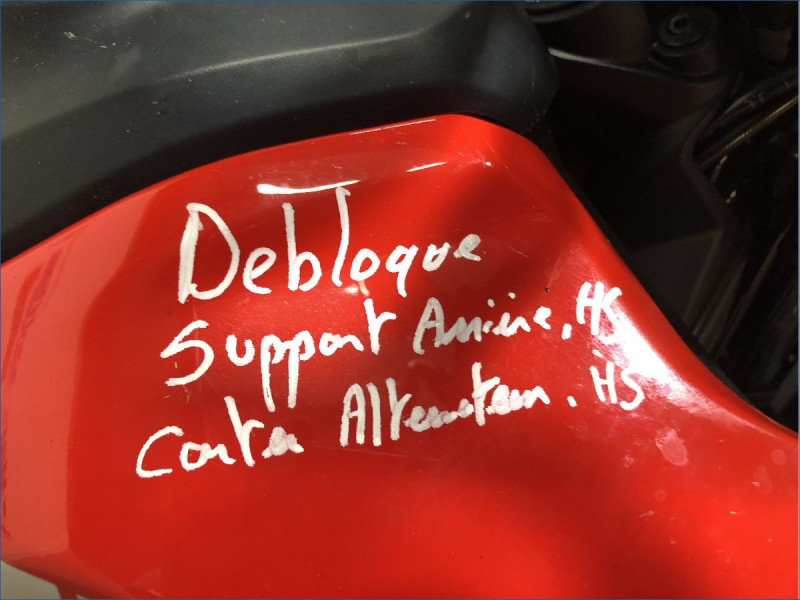 Debloque
Support Arriere, HS
Carter Alternateur. HS